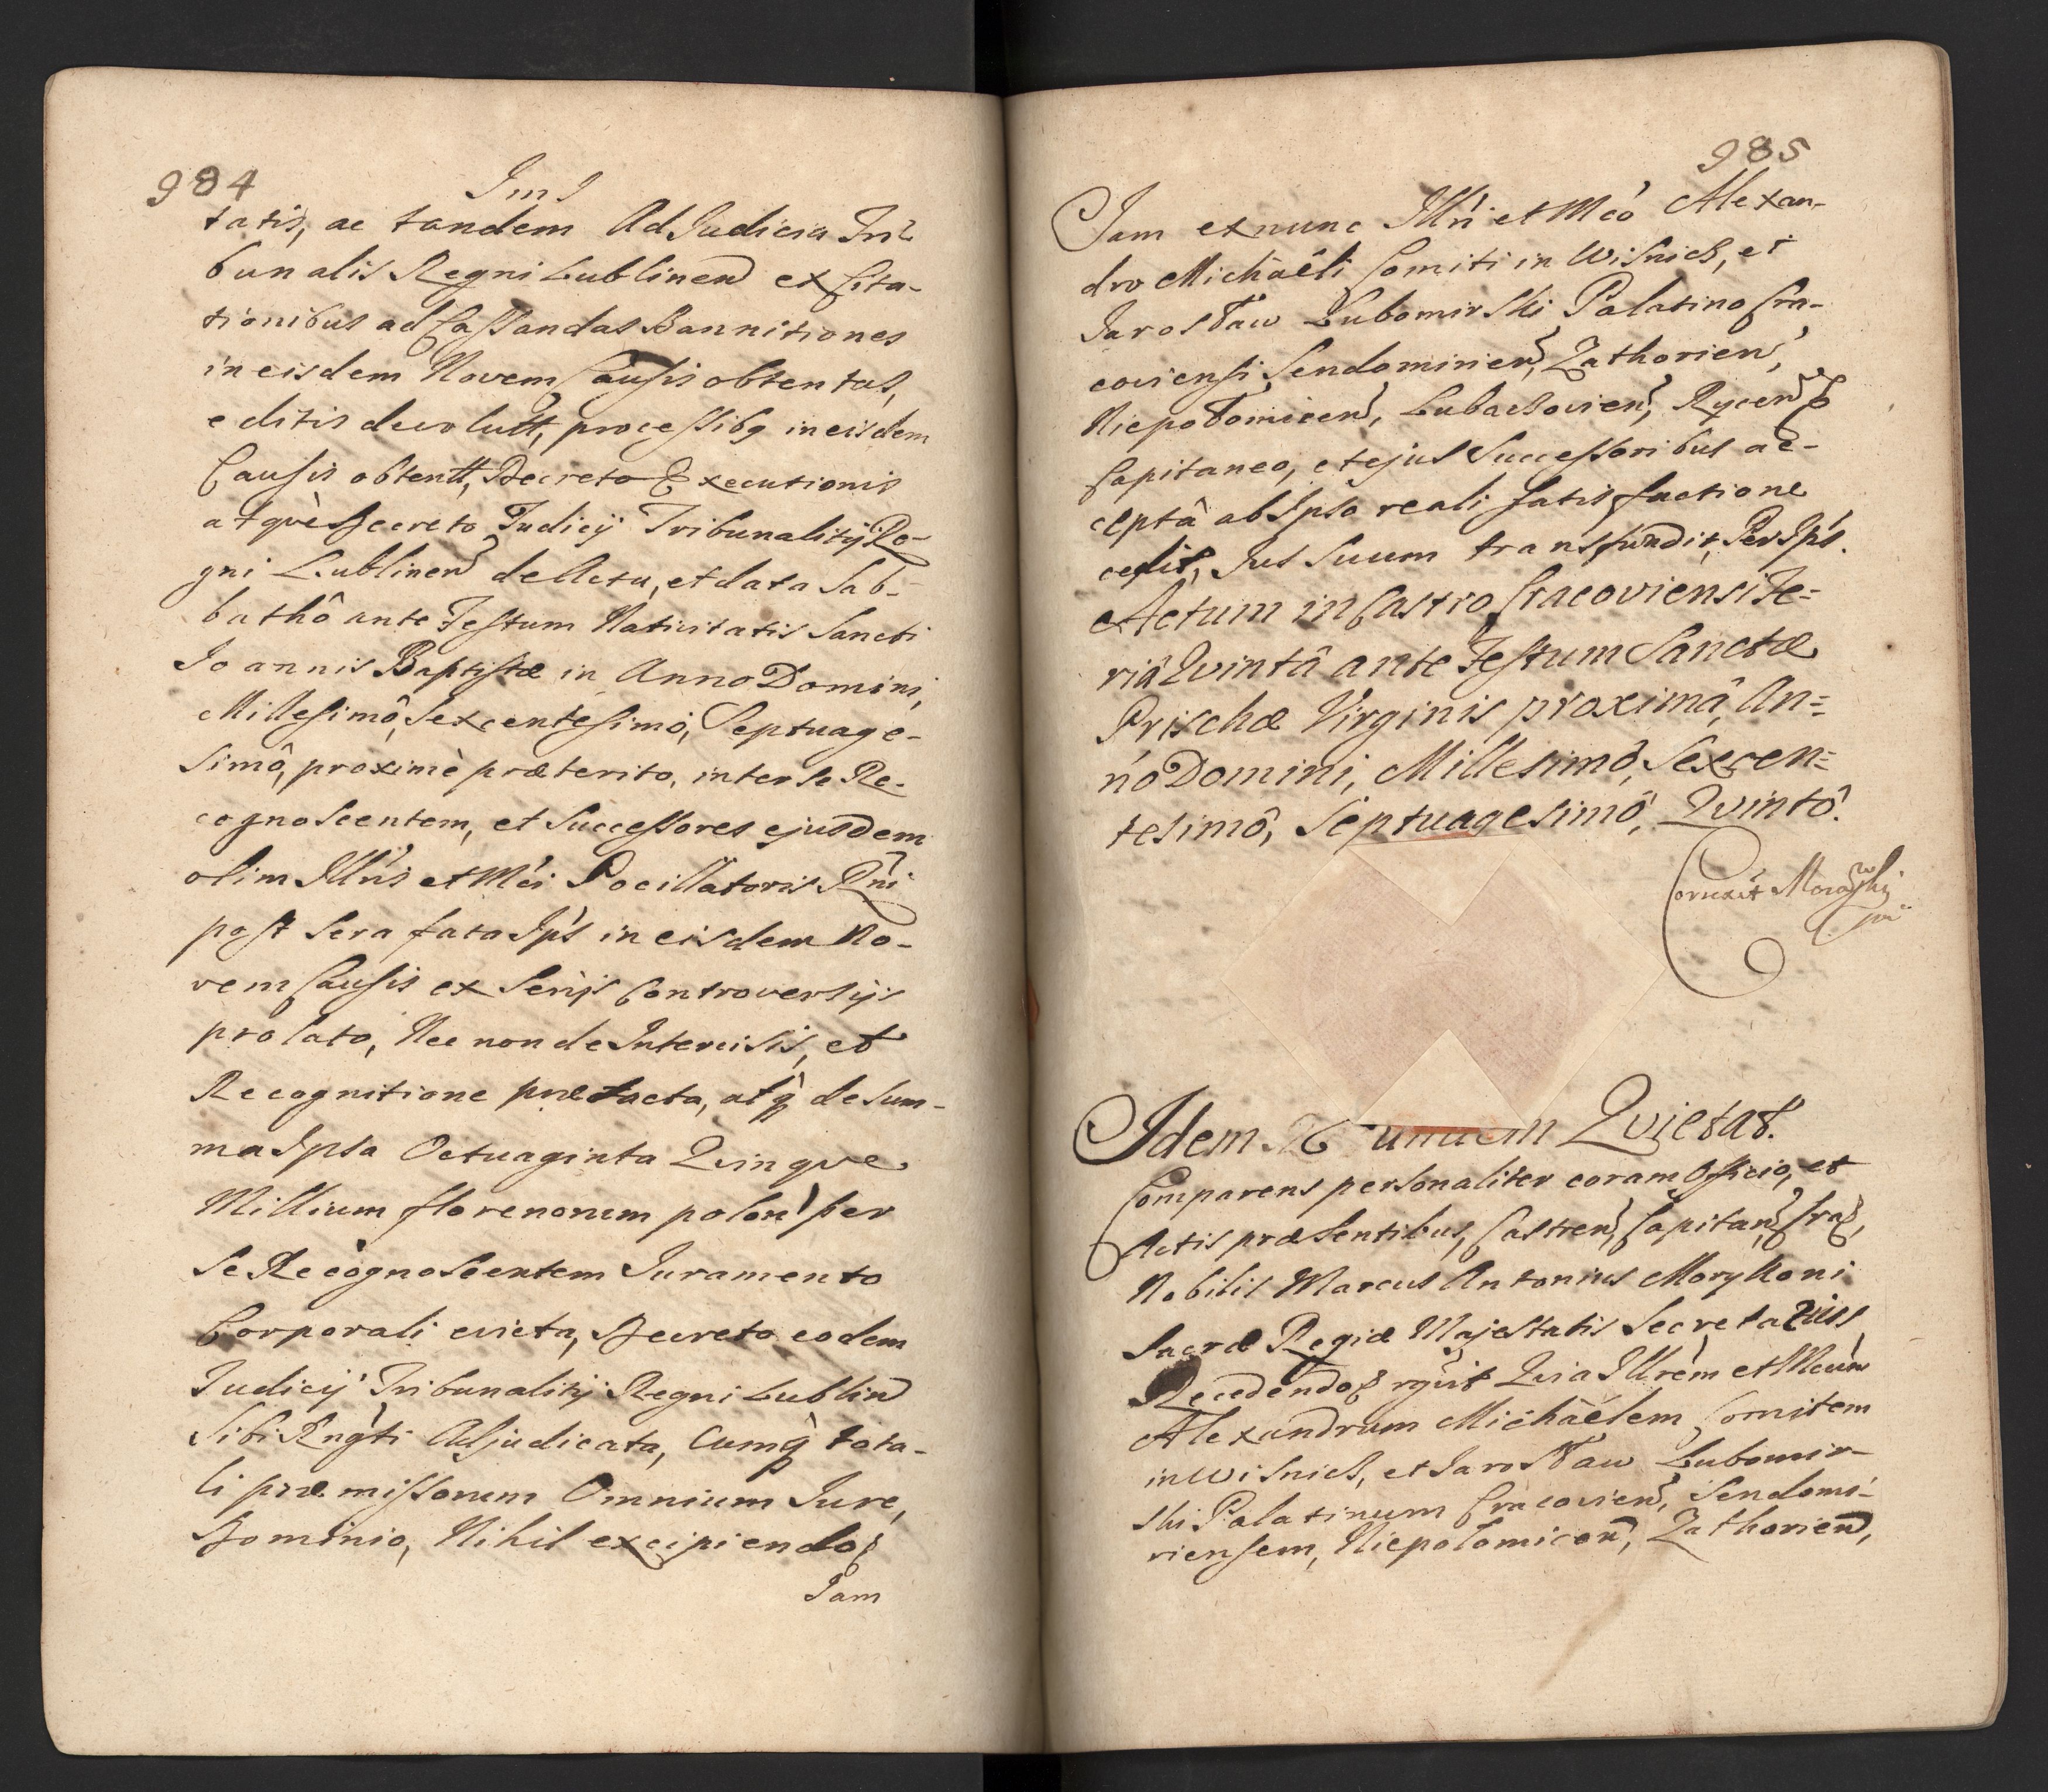 984
tatis, ac tandem Ad Judicia Tri-
bunalis Regni Lublinen ex Cita-
tionibus ad Cassandas Bannitiones
in eisdem Novem Causis obtentas,
editis devolutt, processibq in eisdem
Causis obtentt, Decreto Executionis
atqvè Decreto Judicij Tribunalitij Re-
gni Lublinen de Actu, et data Sab-
bathô ante Festum Nativitatis Sancti
Joannis Baptistæ in Anno Domini,
Millesimô, Sexcentesimô, Septuage-
simô, proximè præterito, inter se Re-
cognoscentem, et Successores ejusdem
olim Illris et Mci Pocillatoris Rni
post sera fata Ips in eisdem No-
vem Causis ex Serijs Controversijs
prolato, Nec non de Intercisis, et
Recognitione prætacta, atq de Sum-
ma Ipsa Octuaginta Qvinqve
Millium florenorum polon per
Se Recognoscentem Juramento
Corporali evicta, Decreto eodem
Judicij Tribunalitij Regni Lublin
Sibi Rngti Adjudicata, Cumq tota-
li præmissorum Omnium Jure,
Dominio, Nihil excipiendo,
Jam
985
Jam ex nunc Illri et Mcô Alexan-
dro Michaëli Comiti in Wisnicz, et
Jarosław Lubomirski Palatino Cra-
coviensi, Sendomirien, Zathorien,
Niepołomicen, Lubaczovien, Rycen
Capitaneo, et ejus Successoribus ac-
ceptâ ab Ipso reali satisfactione
cedit, Jus Suum transfundit, Per Ips.
Actum in Castro Cracoviensi Fe=
riâ Qvintâ ante Festum Sanctæ
Prischæ Virginis proximâ, An=
no Domini, Millesimô, Sexcen=
tesimô, Septuagesimô, Qvintô.
Correxit Morawski
mp
Idem Eundem Qvietat.
Comparens personaliter coram Officio, et
Actis præsentibus, Castren, Capitan, Crac,
Nobilis Marcus Antonius Morykoni
Sacræ Regiæ Majestatis Secretarius
Recedendo rgvit Qvia Illrem et Mcum
Alexandrum Michaëlem Comitem
in Wisnicz, et Jarosław Lubomir-
ski Palatinum Cracovien, Sendomi-
riensem, Niepolomicen, Zathorien,